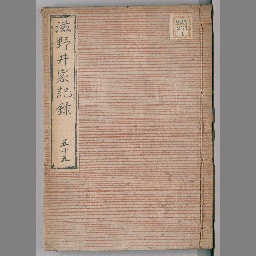 滋野井家記録
五十五